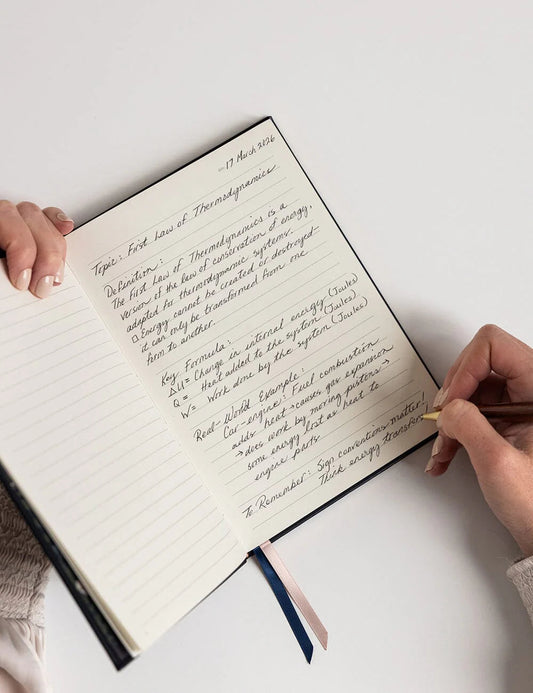 17 March 2026
Topic: First Law of Thermodynamics
Definition:
The First Law of Thermodynamics is a
version of the law of conservation of energy,
adapted for thermodynamic systems.
□ Energy cannot be created or destroyed-
it can only be transformed from one
form to another.
Key Formula:
ΔU = Change in internal energy (Joules)
Q = Heat added to the system (Joules)
W = Work done by the system (Joules)
Real-World Example:
Car-engine: Fuel combustion
adds heat → causes gas expansion
→ does work by moving pistons →
some energy lost as heat to
engine parts.
To Remember: Sign conventions matter!
Think energy transfer